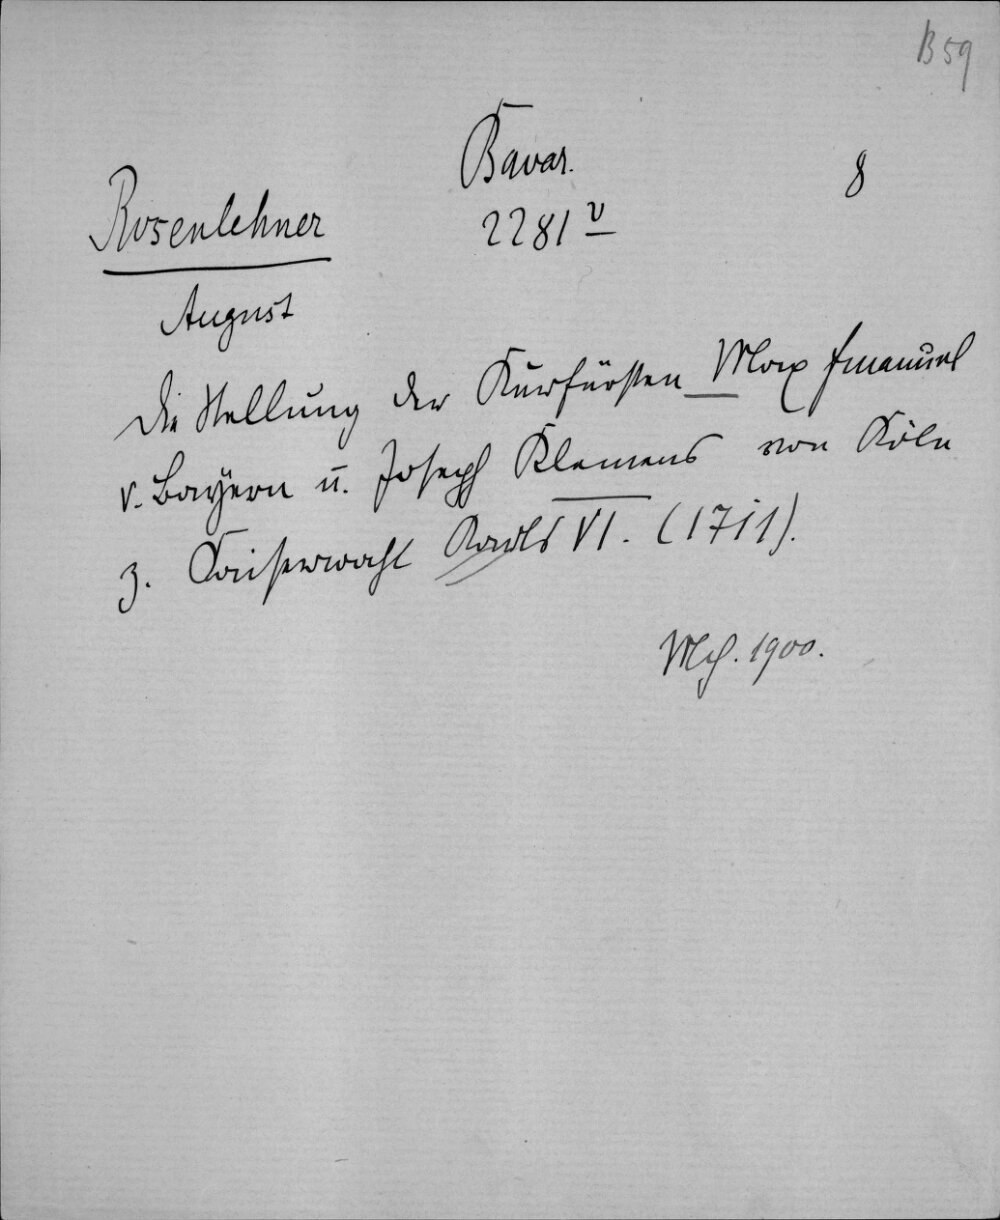 B 59
Bavar.
8
2281 v
Rosenlehner
August
Die Stellung der Kurfürsten Max Emanuel
v. Bayern u. Joseph Klemens von Köln
z. Kaiserwahl Karls VI. (1711).
Mch. 1900.